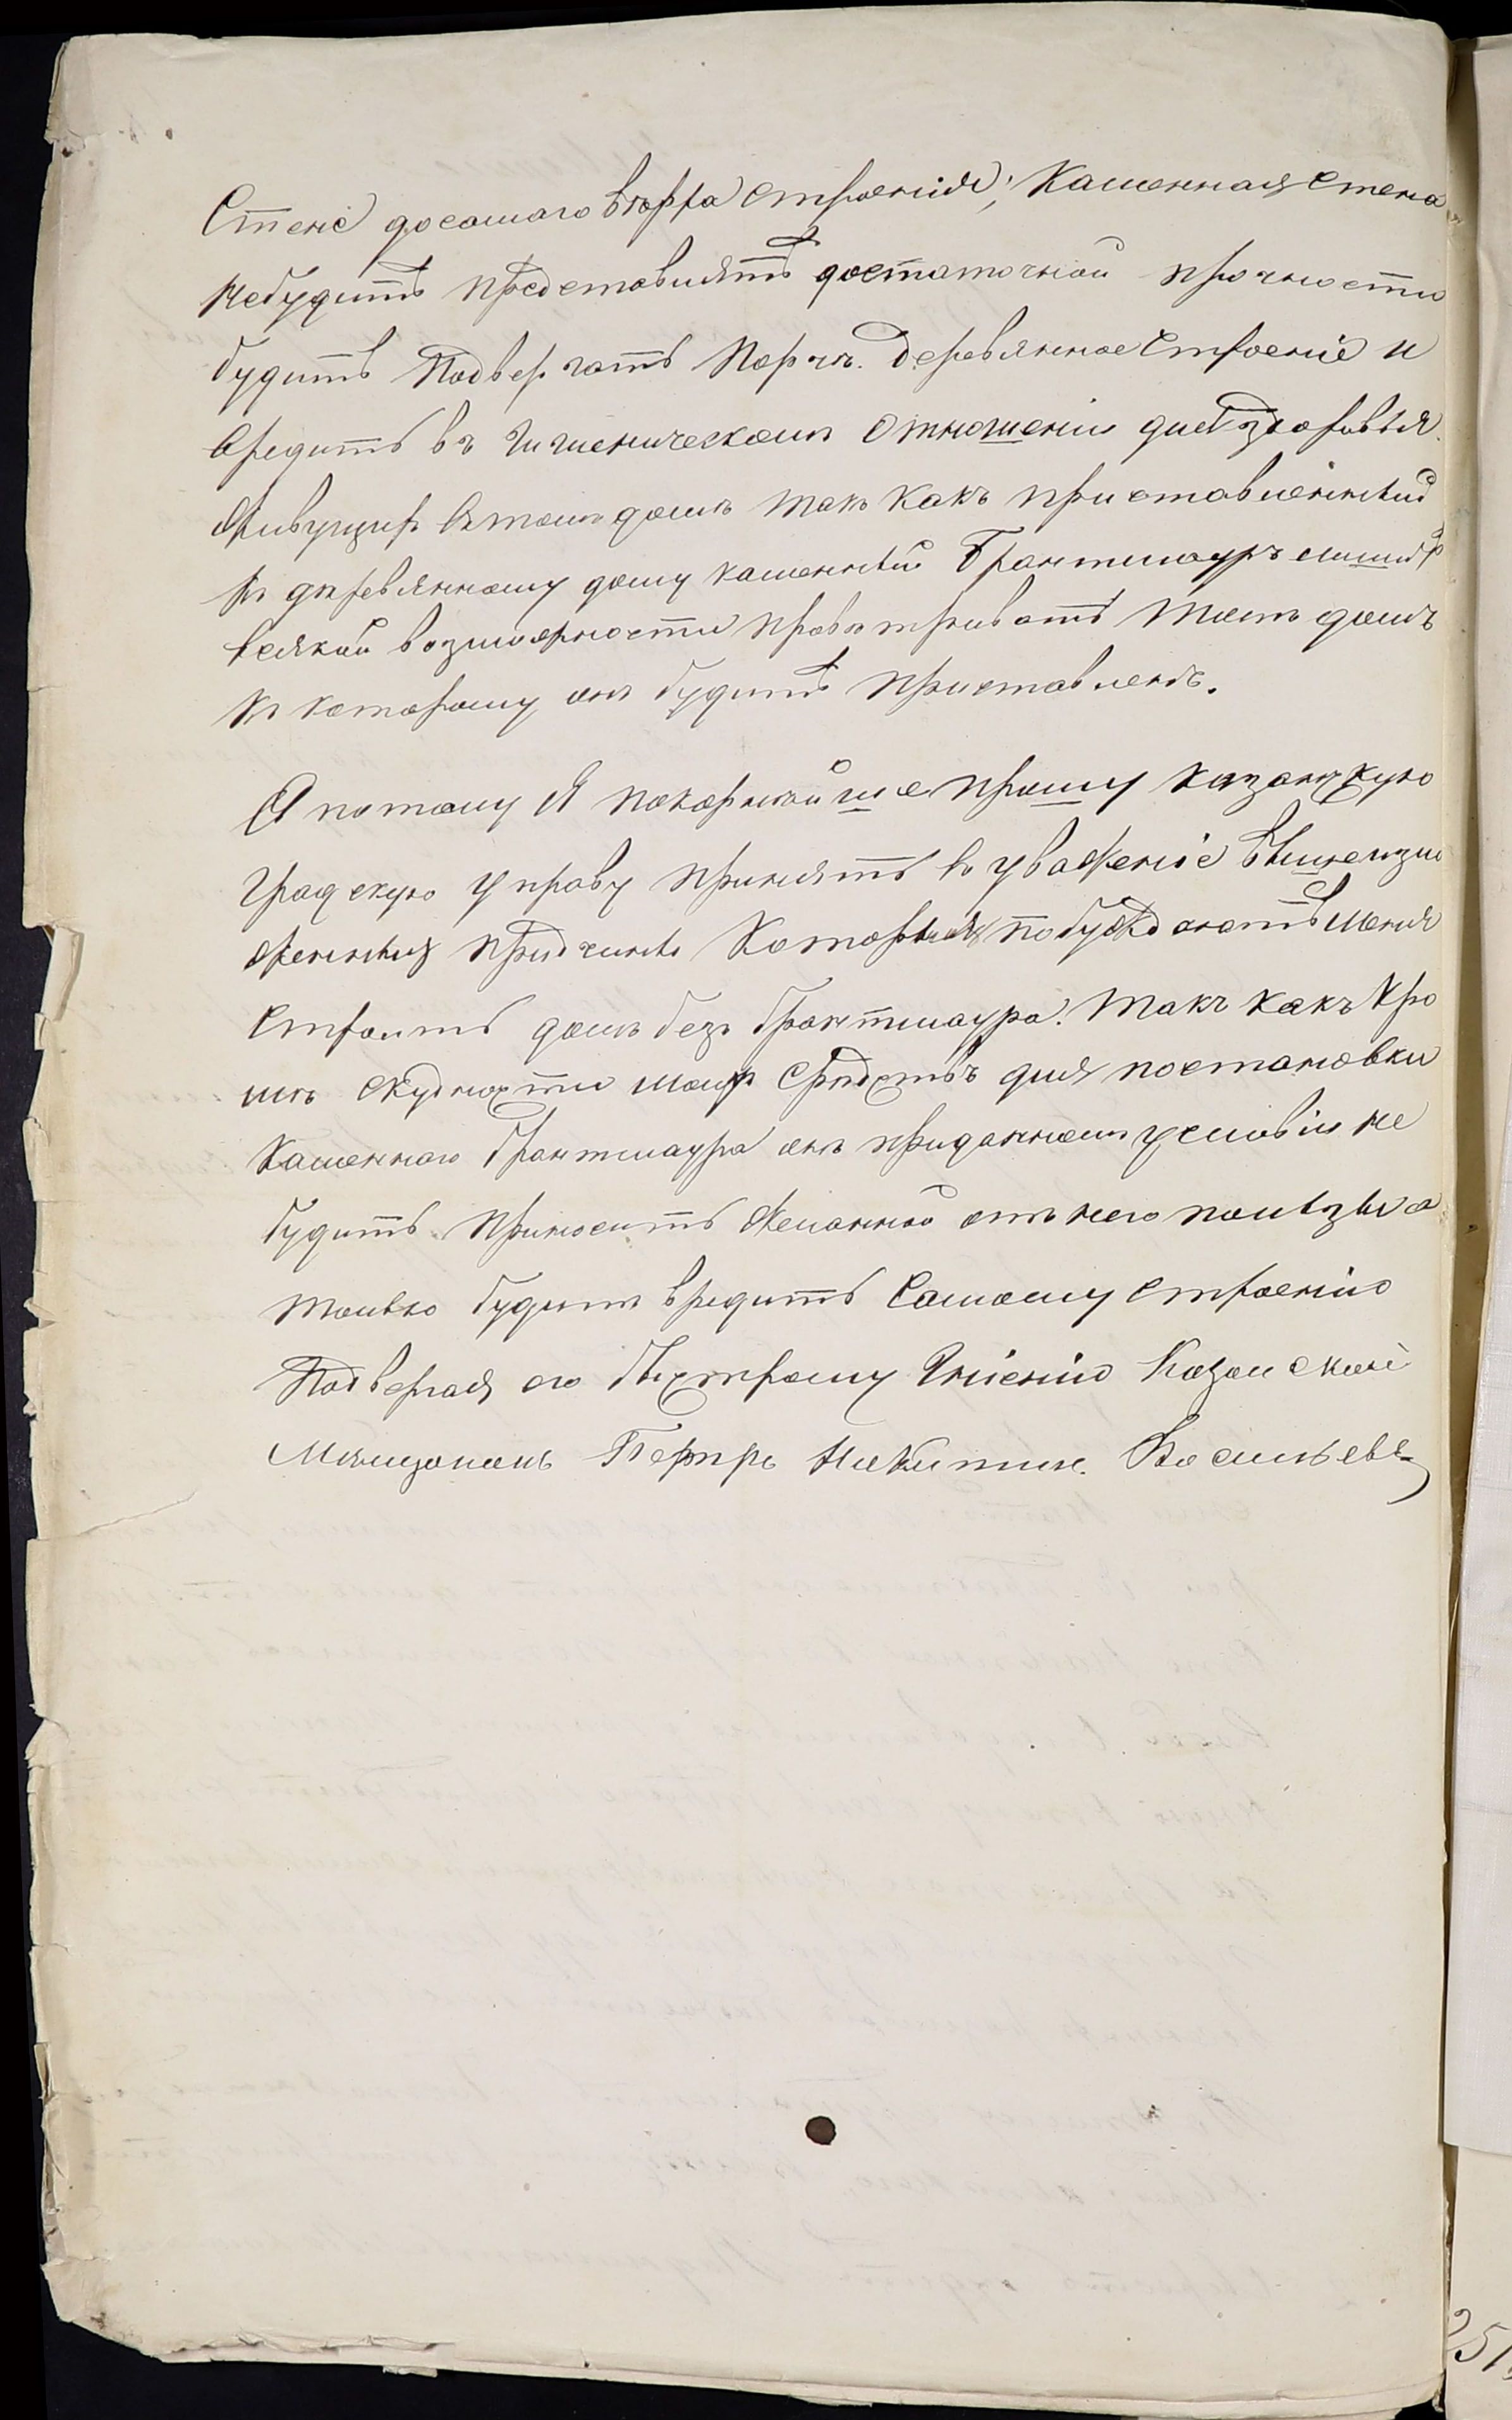 Стене досамаго вѣрха строенія; Каменная стена
небудитъ представлять достаточной прочности
будитъ Подвергать Порчѣ. Деревянное Строеніе и
вредить въ Гигиеническомъ Отношеніи для здоровья
Живущихъ вътомъ домѣ такъ какъ приставленный
къ деревянному дому каменный Брантмауръ лишитъ
всякой возможности провѣтривать тотъ домъ
къ которому онъ будитъ приставленъ.
А потому Я покорнѣйше прошу Казанскую
Градскую Управу принять въ уваженіе вышеизло
женныя придчины Которыя побуждаютъ меня
Строить домъ безъ брантмаура. Такъ какъ Кро
мѣ скудности моихъ срѣдствъ для постановки
Каменнаго брантмаура онъ приданномъ условіи не
будитъ приносить желанной отъ него пользы а
только будитъ вредить Самому строенію
Подвергая его быстрому Гніенію Казанский
Мѣщананъ Петръ Никитин. Васильевъ
251